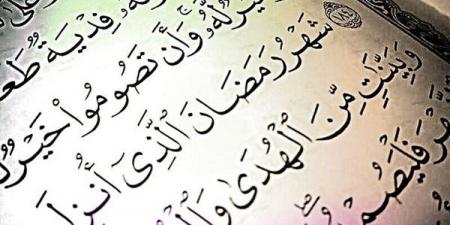 فِدْيَةٌ طَعَ
وَأَن تَصُومُوا۟ خَيْرٌ
١٨٤
شَهْرُ رَمَضَانَ ٱلَّذِىٓ أُنزِلَ
وَبَيِّنَـٰتٍ مِّنَ ٱلْهُدَىٰ وَٱلْ
فَلْيَصُمْ